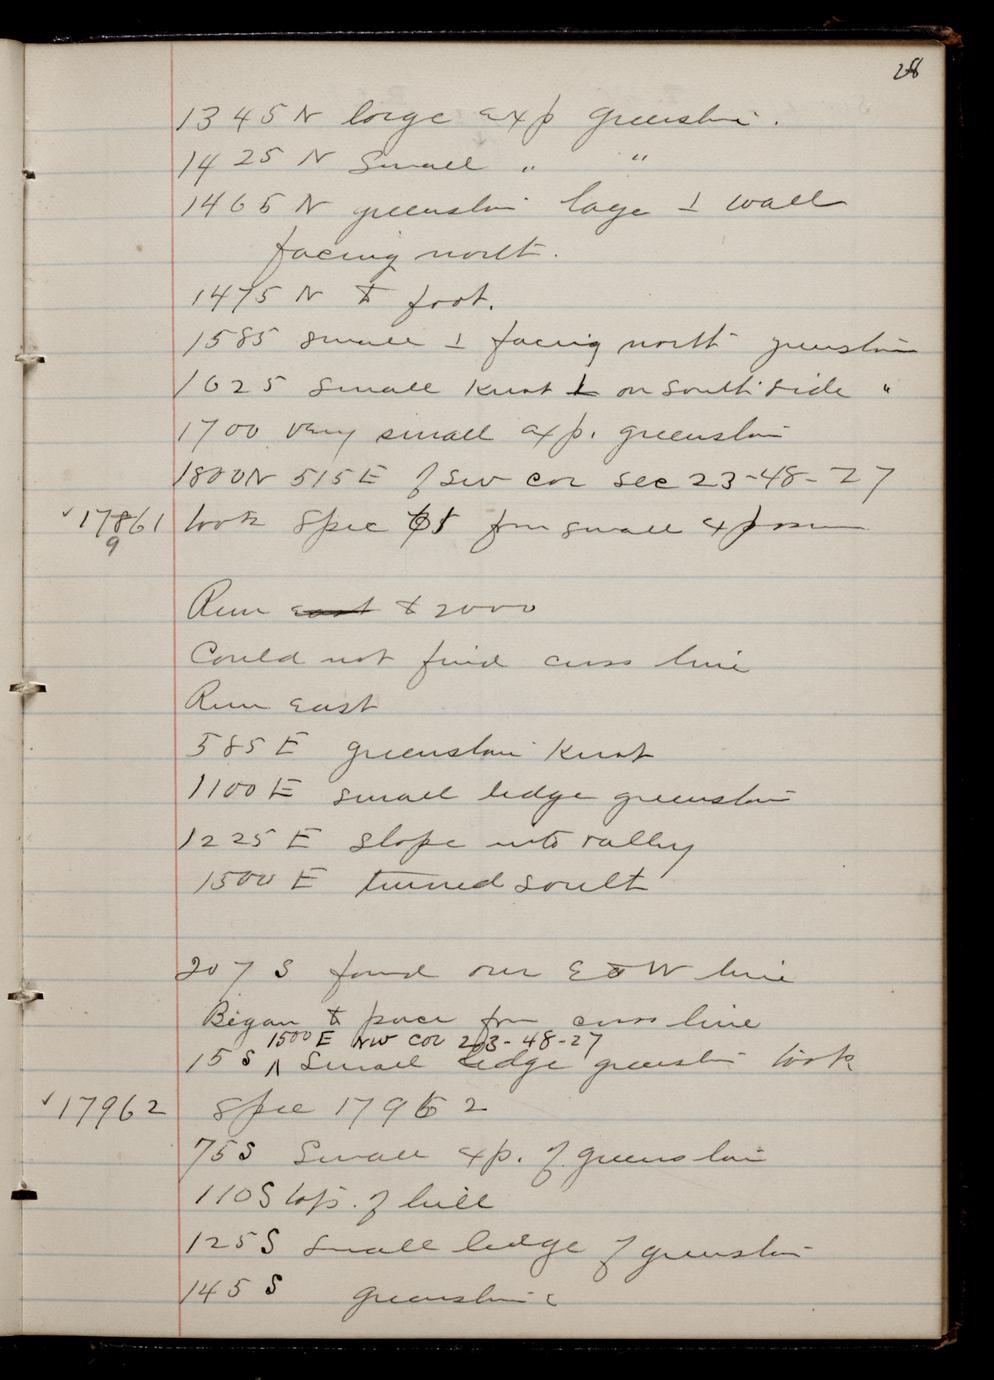 26
1345 N large exp greenstone.
1425 N Small " "
1465 N greenstone large ⊥ wall
facing north.
1475 N to foot.
1585 small ⊥ facing north greenstone
1625 small Knob ⊥ on South side "
1700 very small exp. greenstone
1800N 515E of SW cor sec 23-48-27
✓17861 took Spec 61 from small exposure
9
Run east to 2000
Could not find cross line
Run east
585 E greenstone Knob
1100 E small ledge greenstone
1225 E slope into valley
1500 E turned south
207 S found our E & W line
Began to pace from cross line
1500 E NW cor 23-48-27
15 S ∧ Small ledge greenstone took
✓17962 Spec 17962
75 S Small exp. of greenstone
110 S top. of hill
125 S small ledge of greenstone
145 S greenstone